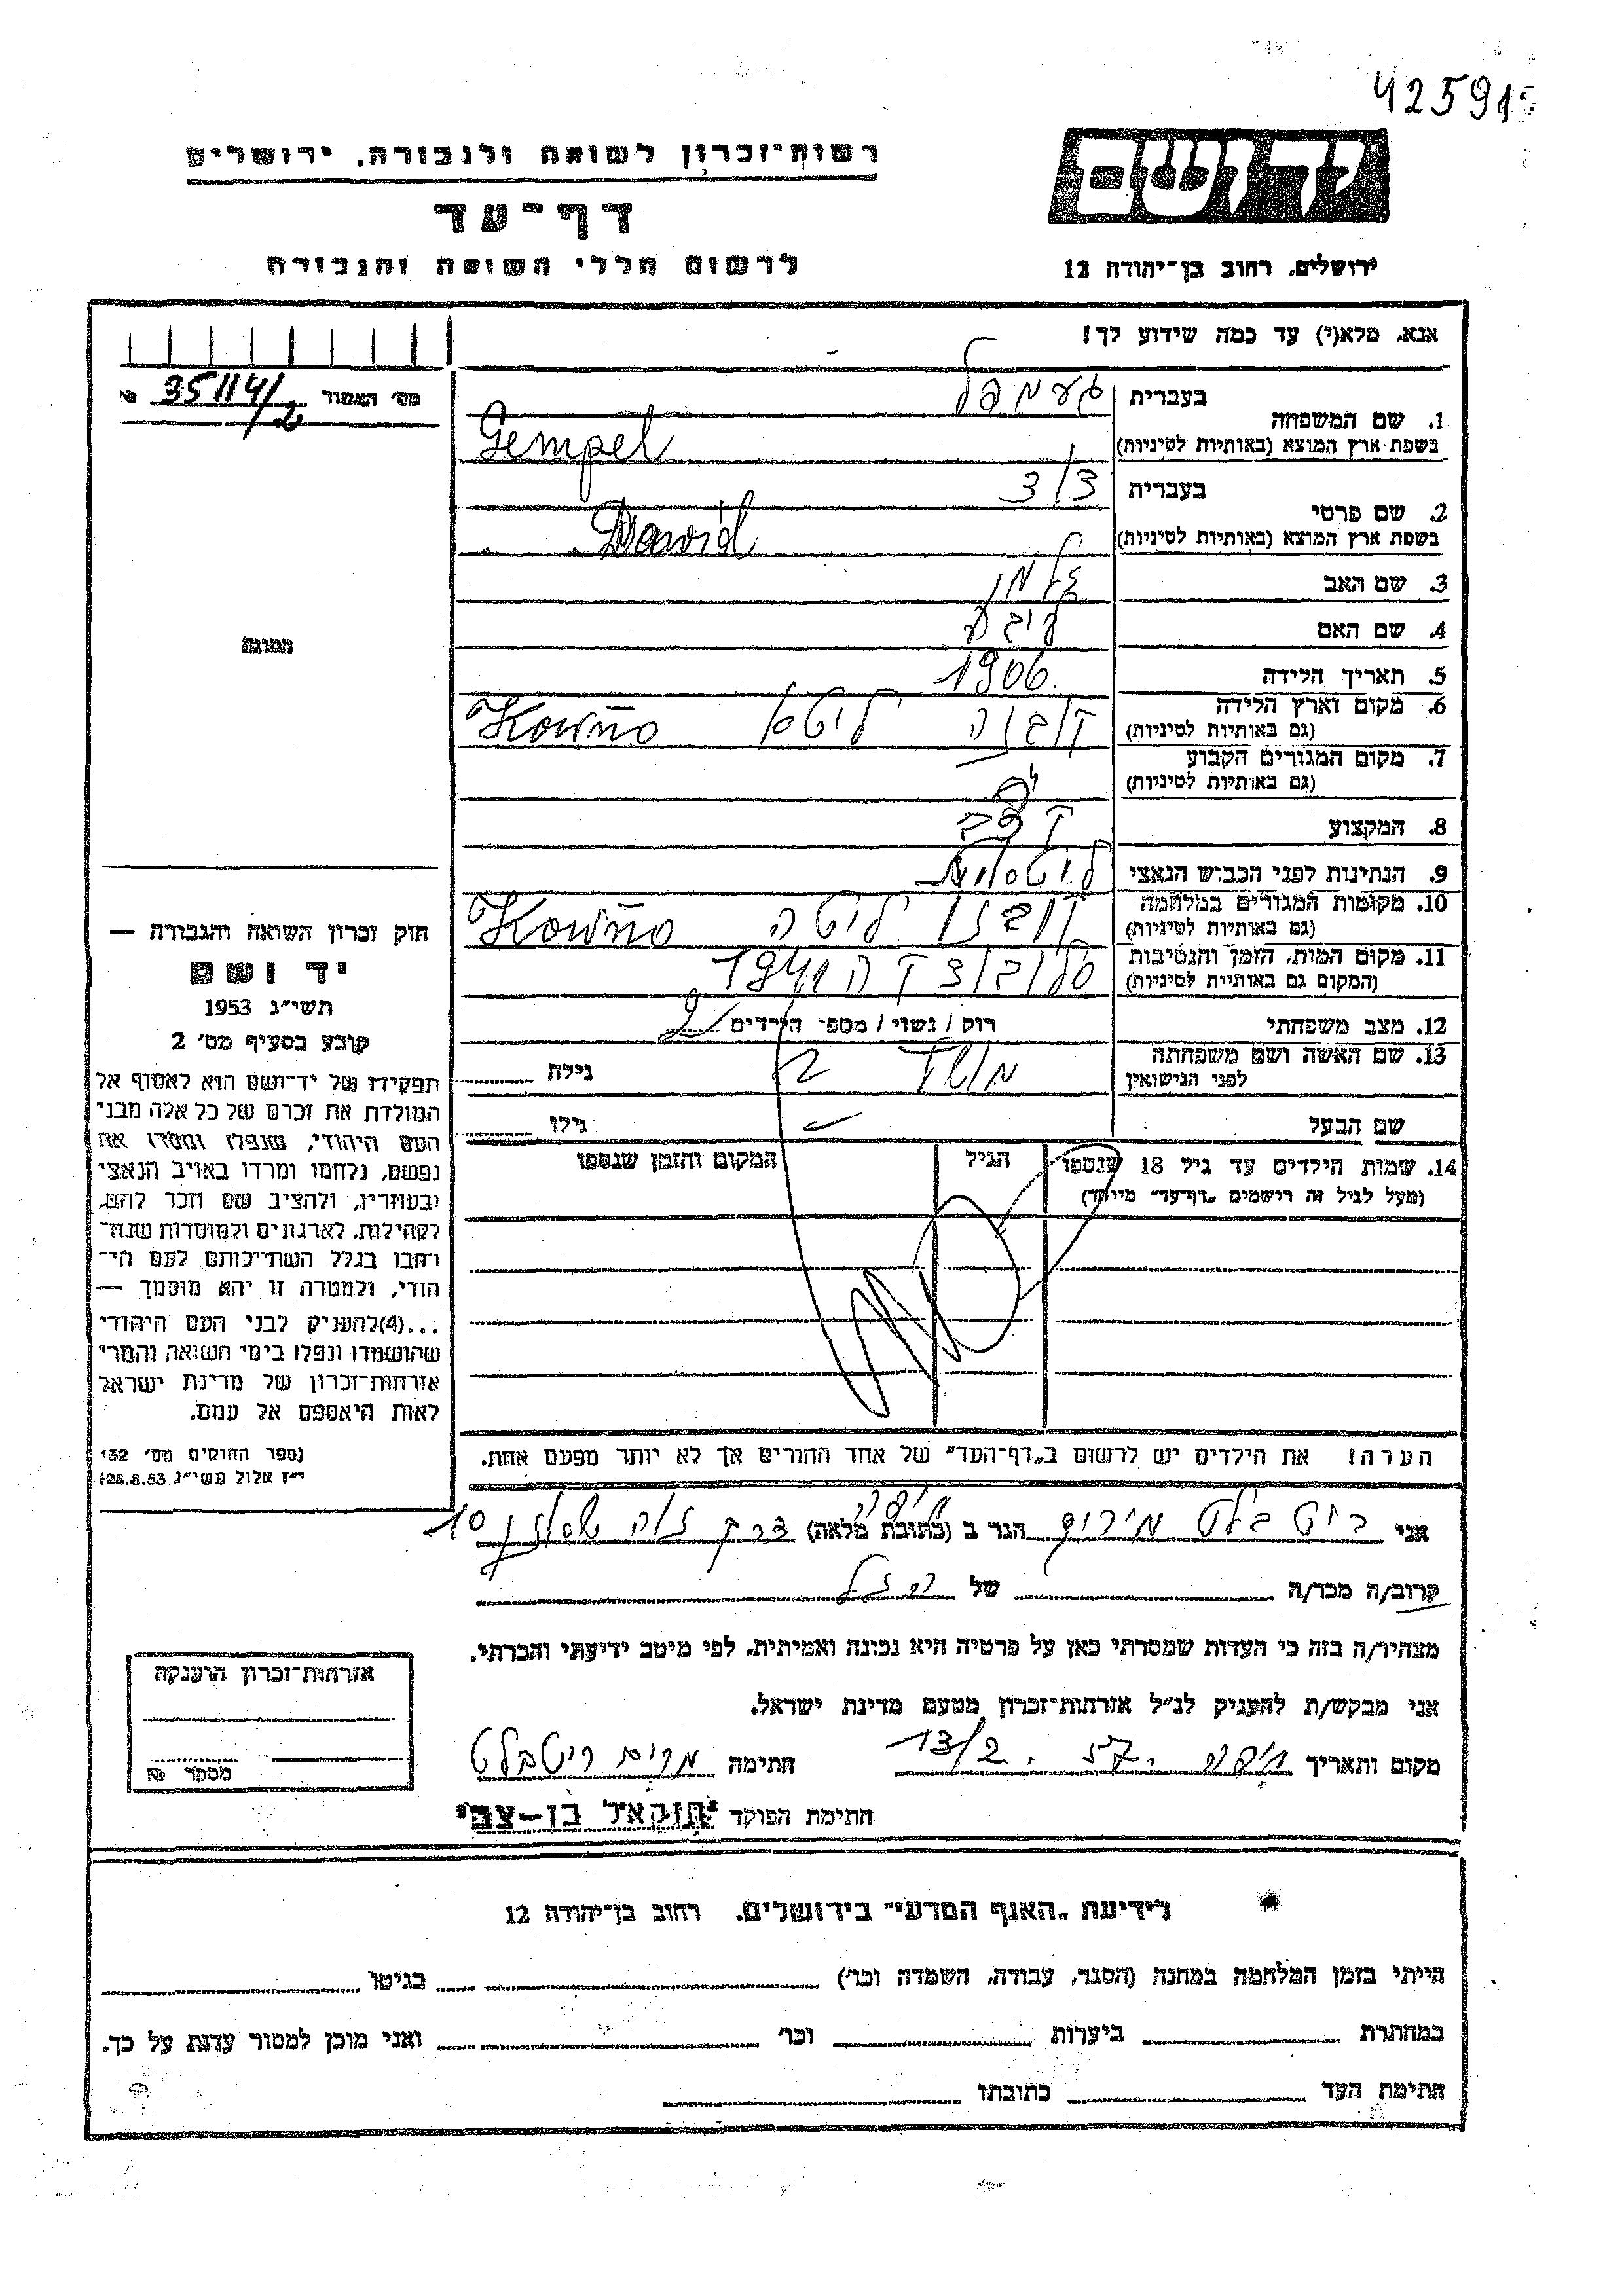 425915
יד ושם
ירושלים, רחוב בן־יהודה 12
רשות־זכרון לשואה ולגבורה, ירושלים
דף־עד
לרשום חללי השואה והגבורה
אנא, מלא(י) עד כמה שידוע לך!
1. שם המשפחה
בעברית
געמפל
בשפת־ארץ המוצא (באותיות לטיניות)
Gempel
2. שם פרטי
בעברית
דוד
בשפת ארץ המוצא (באותיות לטיניות)
Dawid
3. שם האב
זלמן
4. שם האם
5. תאריך הלידה
1906
6. מקום וארץ הלידה
(גם באותיות לטיניות)
קובנה ליטא Kowno
7. מקום המגורים הקבוע
(גם באותיות לטיניות)
8. המקצוע
9. הנתינות לפני הכבוש הנאצי
ליטאית
10. מקומות המגורים במלחמה
(גם באותיות לטיניות)
קובנו ליטה Kowno
11. מקום המות, הזמן והנסיבות
(המקום גם באותיות לטיניות)
1941
12. מצב משפחתי
רוק / נשוי / מספ׳ הילדים 2
13. שם האשה ושם משפחתה
לפני הנישואין
גילה
שם הבעל
גילו
14. שמות הילדים עד גיל 18 שנספו
(מעל לגיל זה רושמים „דף־עד״ מיוחד)
הגיל
המקום והזמן שנספו
הערה! את הילדים יש לרשום ב„דף־העד״ של אחד ההורים אך לא יותר מפעם אחת.
מס׳ האמור № 35114/2
תמונה
חוק זכרון השואה והגבורה —
יד ושם
תשי״ג 1953
קובע בסעיף מס׳ 2
תפקידו של יד־ושם הוא לאסוף אל
המולדת את זכרם של כל אלה מבני
העם היהודי, שנפלו ומסרו את
נפשם, נלחמו ומרדו באויב הנאצי
ובעוזריו, ולהציב שם וזכר להם,
לקהילות, לארגונים ולמוסדות שנח־
רבו בגלל השתייכותם לעם הי־
הודי, ולמטרה זו יהא מוסמך —
...(4)להעניק לבני העם היהודי
שהושמדו ונפלו בימי השואה והמרי
אזרחות־זכרון של מדינת ישראל
לאות היאספם אל עמם.
(ספר החוקים מס׳ 132
י״ז אלול תשי״ג 28.8.53)
אני ריטבלט מירים הגר ב (כתובת מלאה) חיפה דרך נוה שאנן 10
קרוב/ה מכר/ה של
מצהיר/ה בזה כי העדות שמסרתי כאן על פרטיה היא נכונה ואמיתית, לפי מיטב ידיעתי והכרתי.
אני מבקש/ת להעניק לנ״ל אזרחות־זכרון מטעם מדינת ישראל.
מקום ותאריך חיפה 57. 13/2 חתימה מרים ריטבלט
חתימת הפוקד יחזקאל בן–צבי
אזרחות־זכרון הוענקה
מספר №
לידיעת „האגף המדעי״ בירושלים, רחוב בן־יהודה 12
הייתי בזמן המלחמה במחנה (הסגר, עבודה, השמדה וכר׳) בגיטו
במחתרת ביערות וכר׳ ואני מוכן למסור עדות על כך.
חתימת העד כתובתו